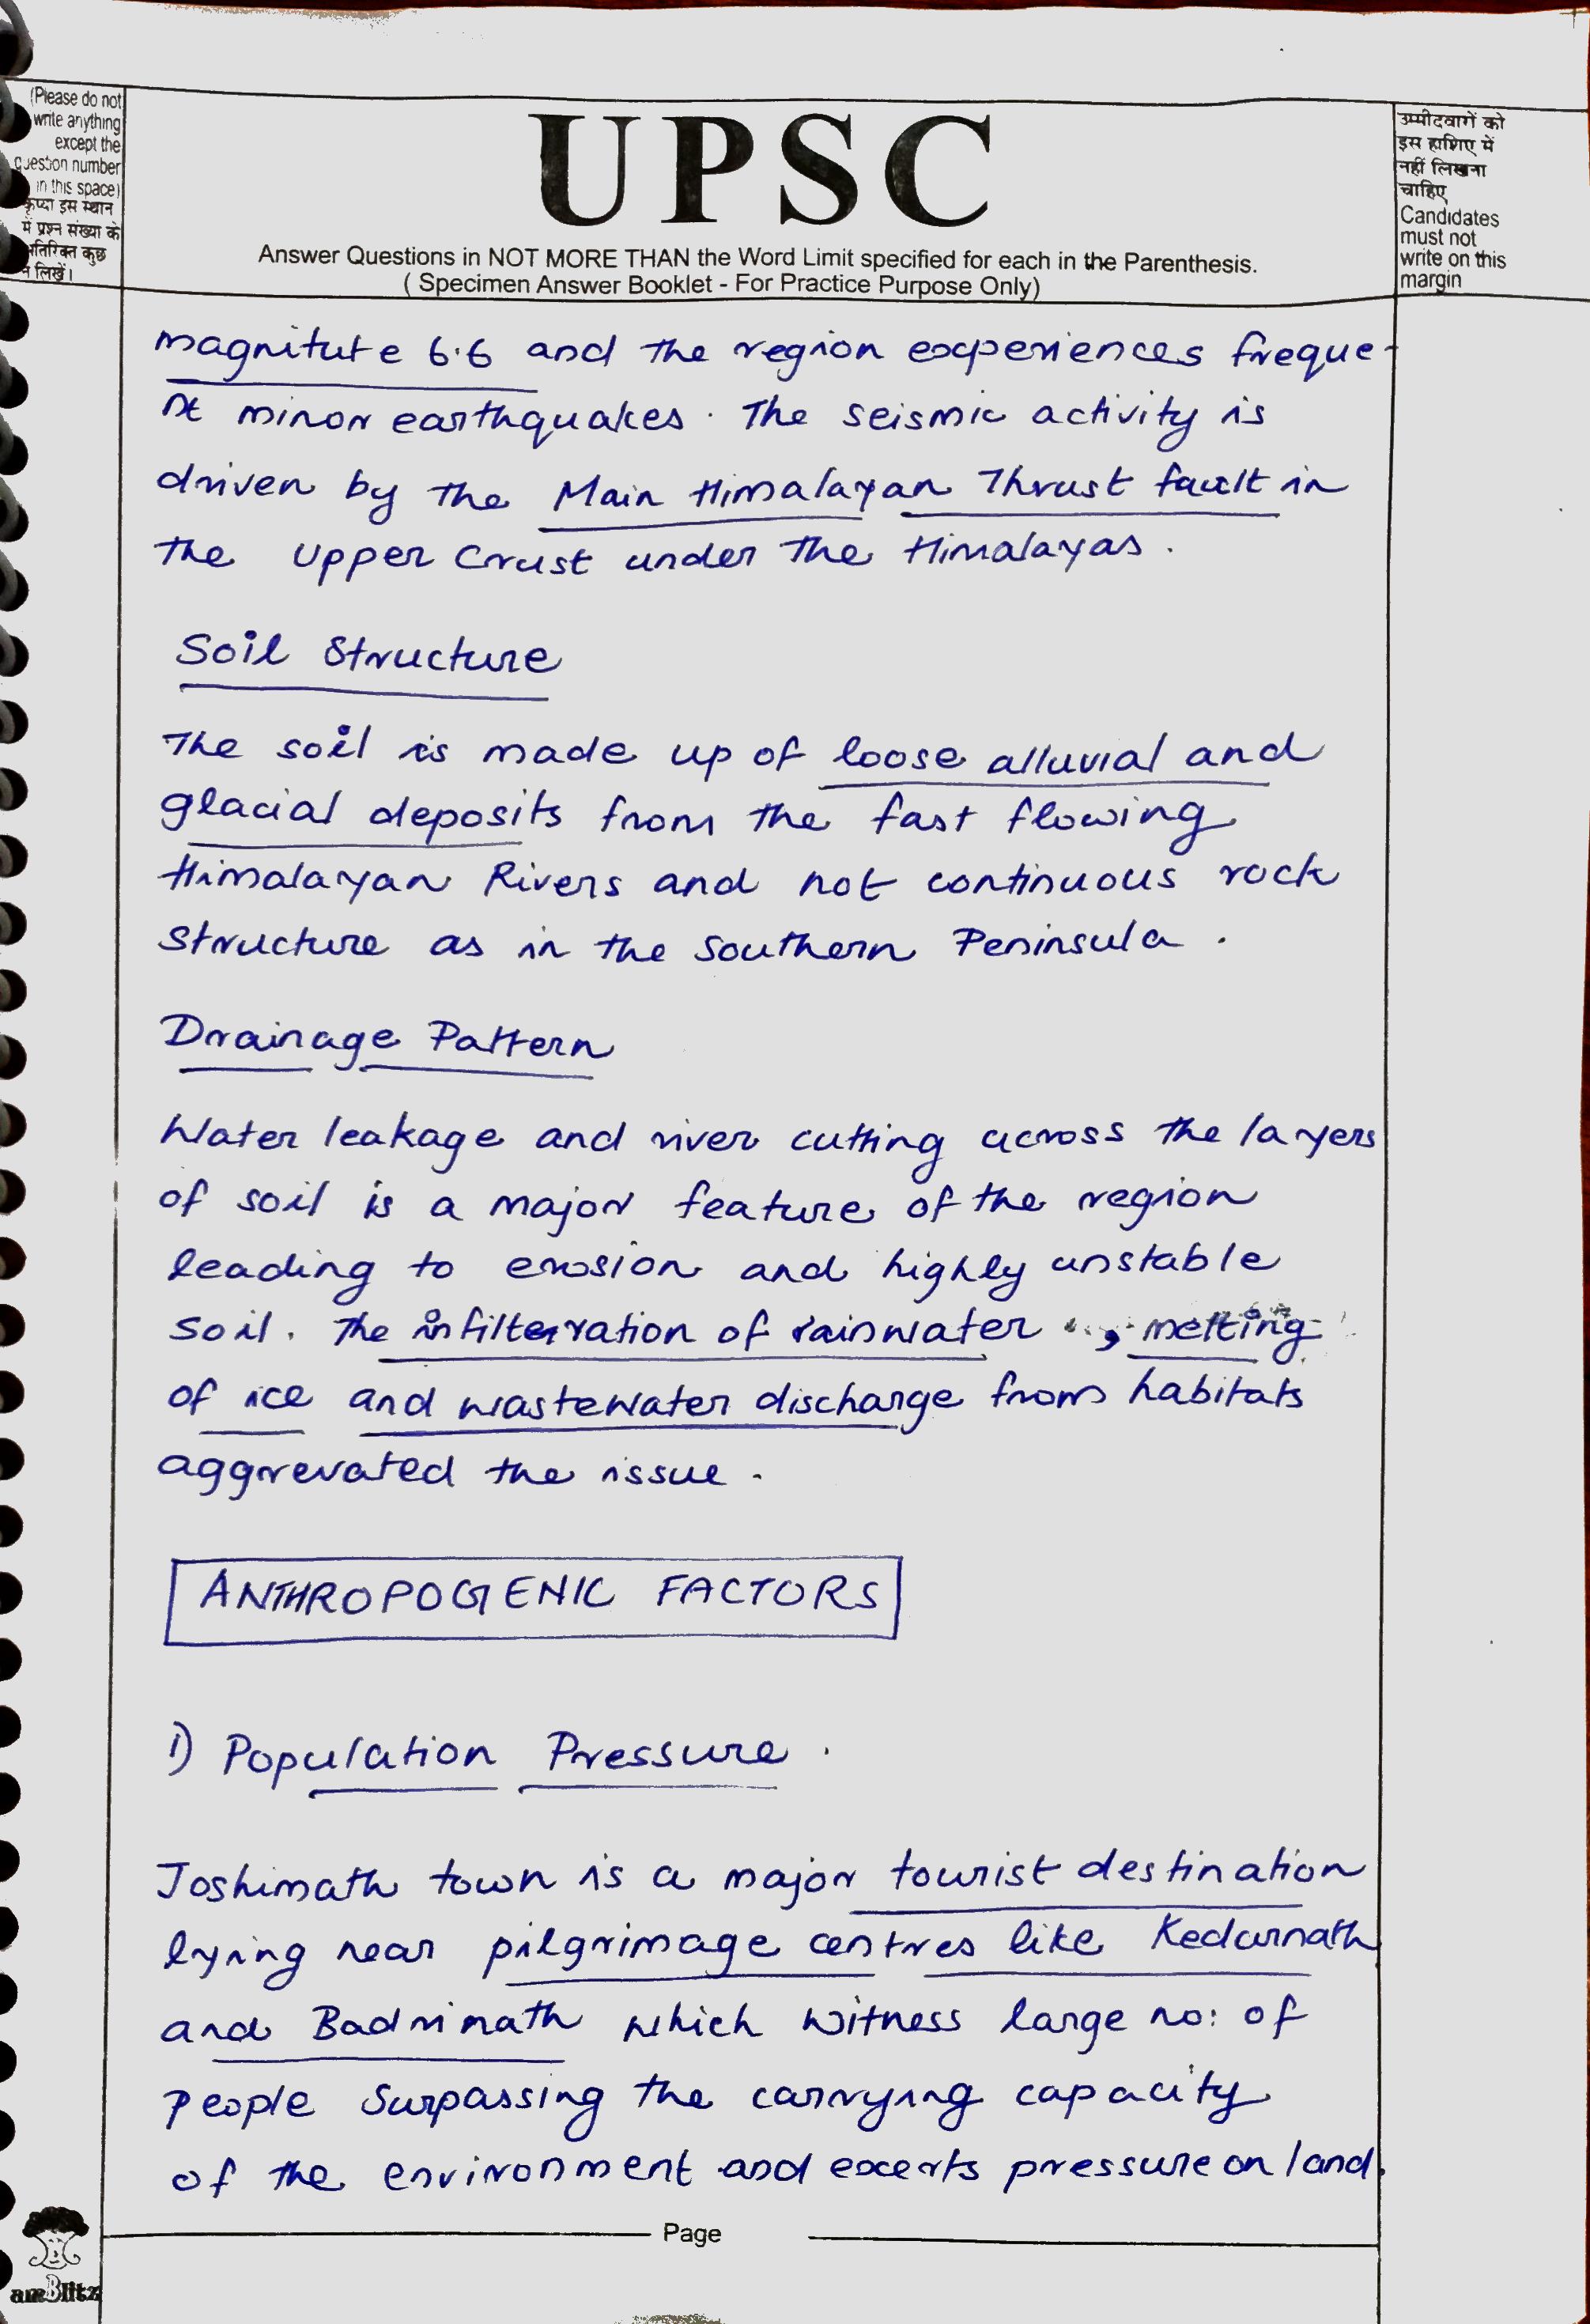 (Please do not
write anything
except the
question number
in this space)
कृप्या इस स्थान
में प्रश्न संख्या के
अतिरिक्त कुछ
न लिखें।
UPSC
Answer Questions in NOT MORE THAN the Word Limit specified for each in the Parenthesis.
( Specimen Answer Booklet - For Practice Purpose Only)
उम्मीदवारों को
इस हाशिए में
नहीं लिखना
चाहिए
Candidates
must not
write on this
margin
magnitute 6.6 and the region experiences freque-
nt minor earthquakes. The seismic activity is
driven by the Main Himalayan Thrust fault in
the Upper Crust under the Himalayas.
Soil Structure
The soil is made up of loose alluvial and
glacial deposits from the fast flowing
Himalayan Rivers and not continuous rock
structure as in the Southern Peninsula.
Drainage Pattern
Water leakage and river cutting across the layers
of soil is a major feature of the region
leading to erosion and highly unstable
soil. The infilterration of rainwater, melting
of ice and wastewater discharge from habitats
aggrevated the issue.
ANTHROPOGENIC FACTORS
1) Population Pressure.
Joshimath town is a major tourist destination
lying near pilgrimage centres like Kedarnath
and Badrinath which witness large no: of
people surpassing the carrying capacity
of the environment and excerts pressure on land.
Page
amBlitz